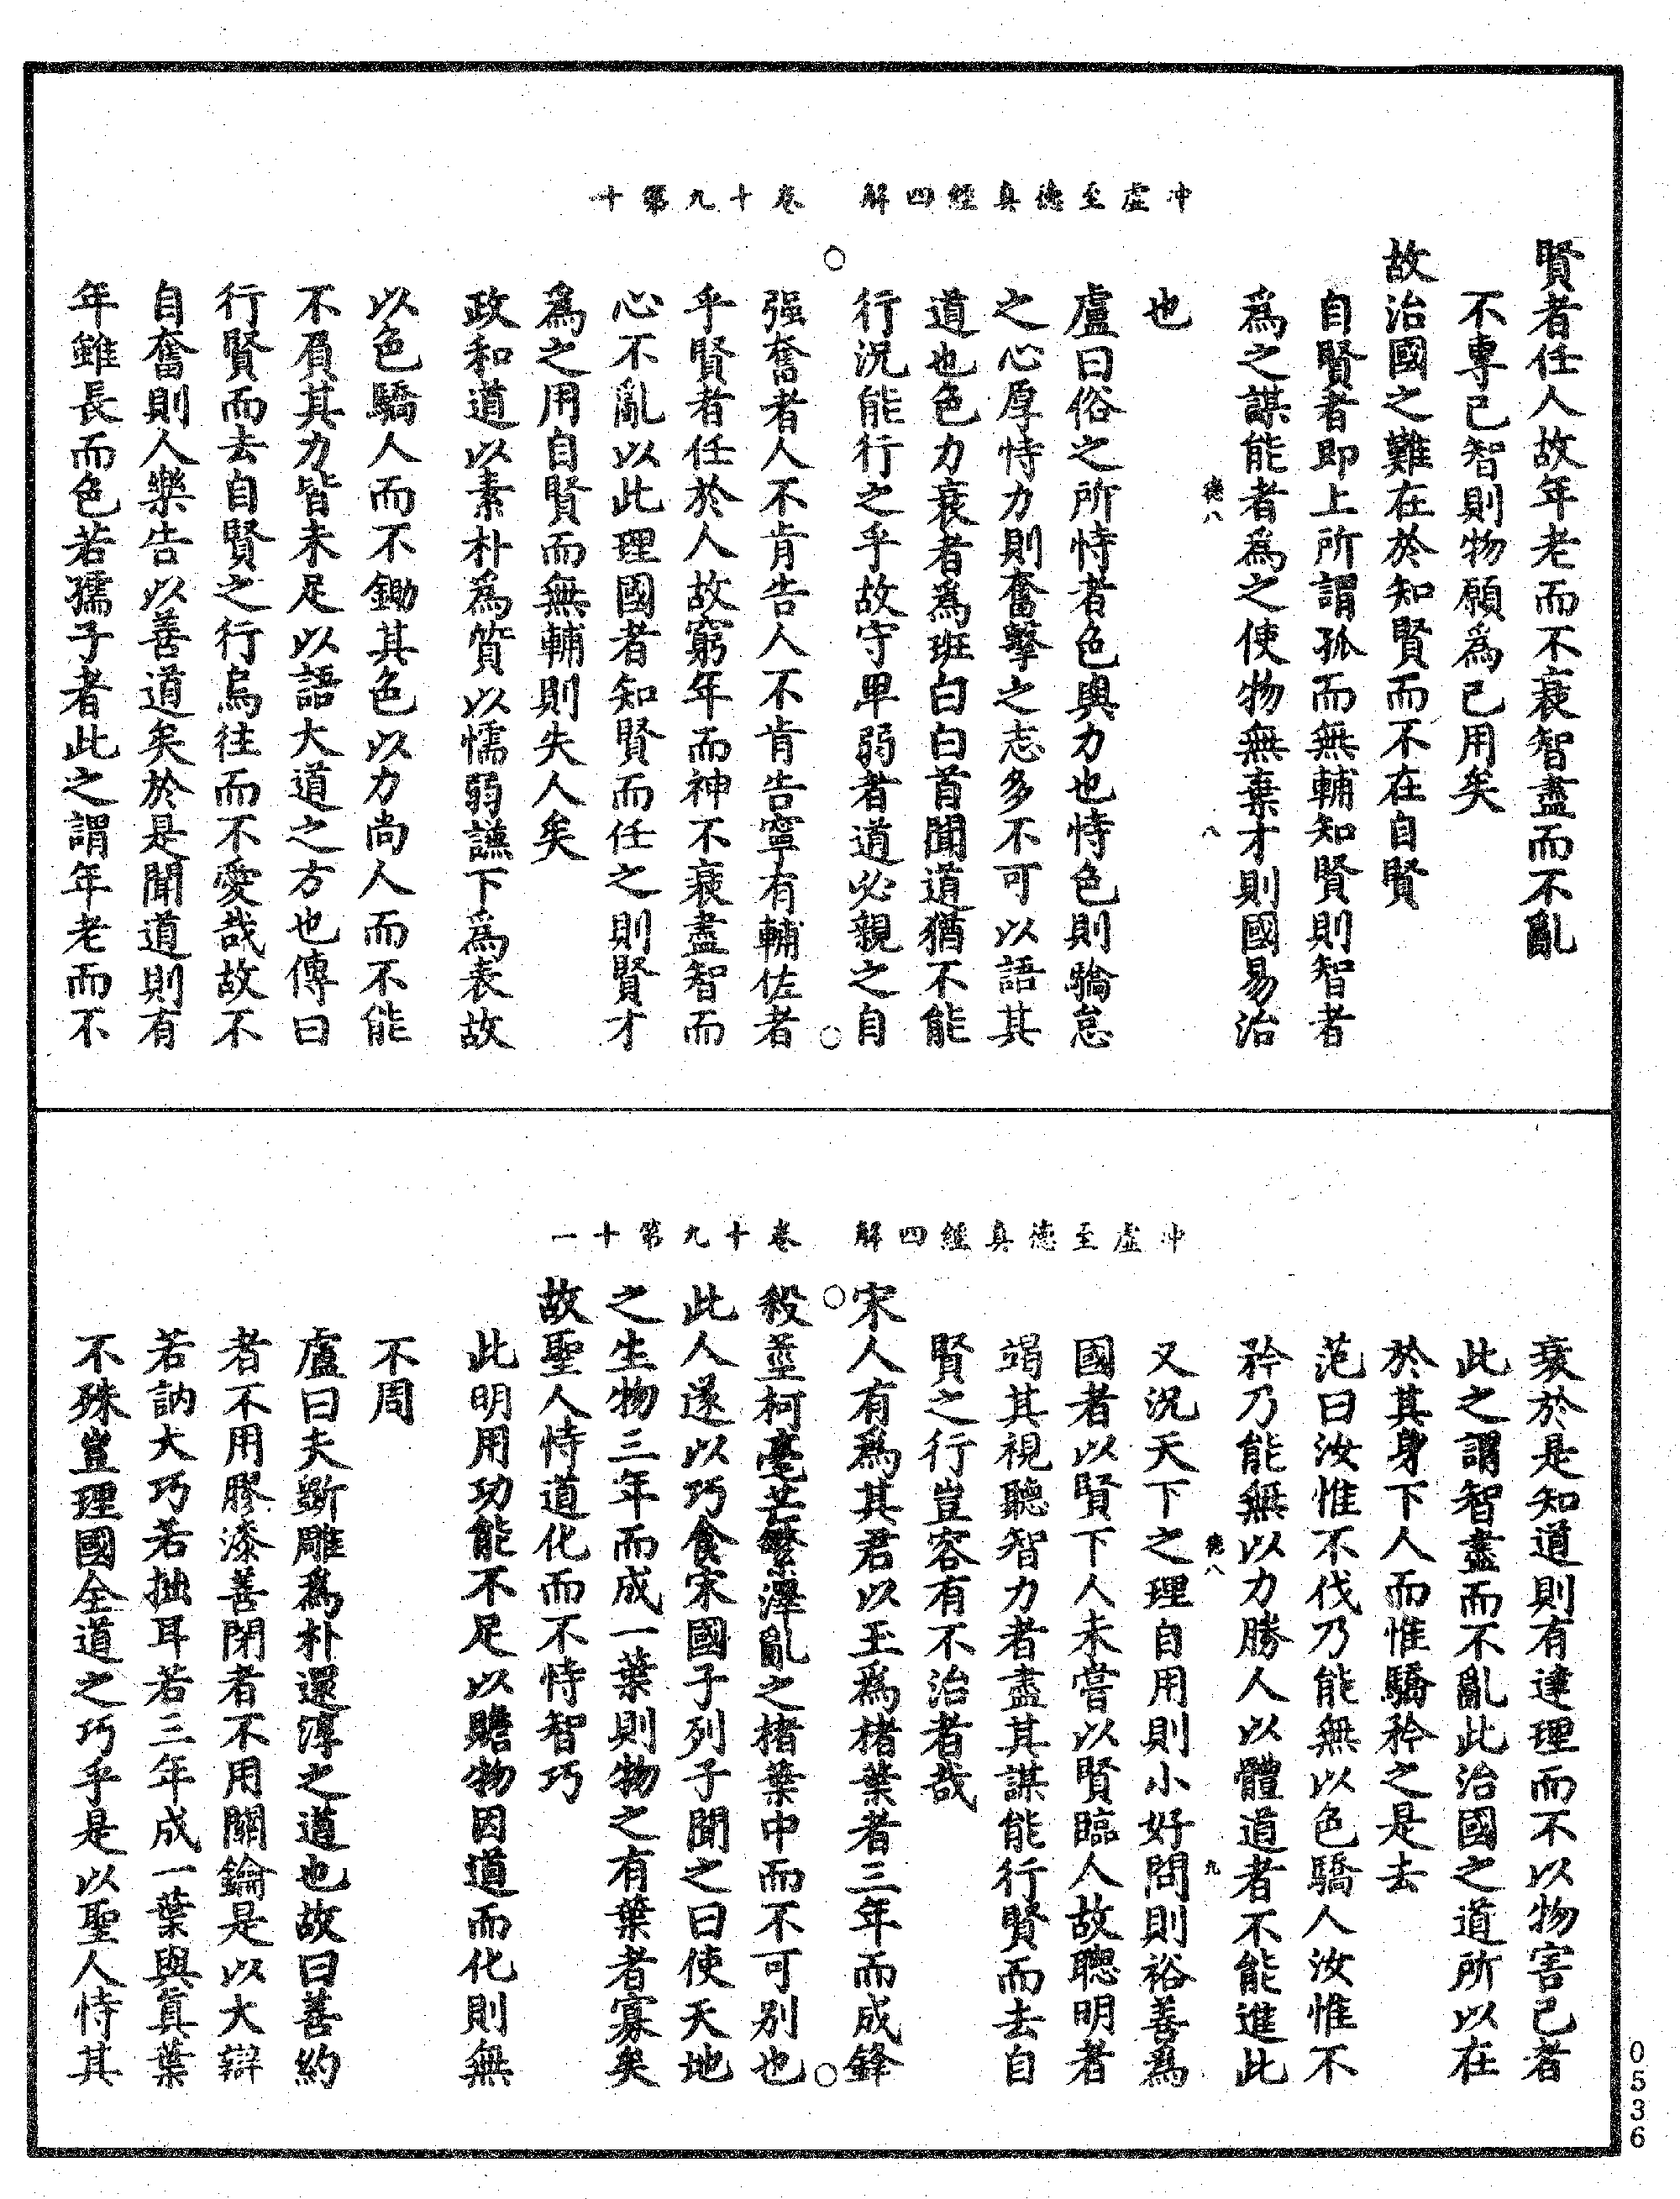 冲虛至德真經四解　卷十九第十
賢者任人故年老而不衰智盡而不亂
不專己智則物願為己用矣
故治國之難在於知賢而不在自賢
自賢者即上所謂孤而無輔知賢則智者
為之謀能者為之使物無棄才則國易治
德八　八
也
盧曰俗之所恃者色與力也恃色則驕怠
之心厚恃力則奮擊之志多不可以語其
道也色力衰者為班白白首聞道猶不能
行況能行之乎故守卑弱者道必親之自
强奮者人不肯告人不肯告寧有輔佐者
乎賢者任於人故窮年而神不衰盡智而
心不亂以此理國者知賢而任之則賢才
為之用自賢而無輔則失人矣
政和道以素朴為質以懦弱謙下為表故
以色驕人而不鋤其色以力尚人而不能
不屓其力皆未足以語大道之方也傳曰
行賢而去自賢之行烏往而不愛哉故不
自奮則人樂告以善道矣於是聞道則有
年雖長而色若孺子者此之謂年老而不
冲虛至德真經四解　卷十九第十一
衰於是知道則有達理而不以物害己者
此之謂智盡而不亂此治國之道所以在
於其身下人而惟驕矜之是去
范曰汝惟不伐乃能無以色驕人汝惟不
矜乃能無以力勝人以體道者不能進此
德八　九
又況天下之理自用則小好問則裕善為
國者以賢下人未嘗以賢臨人故聰明者
竭其視聽智力者盡其謀能行賢而去自
賢之行豈容有不治者哉
宋人有為其君以玉為楮葉者三年而成鋒
殺莖柯毫芒繁澤亂之楮葉中而不可別也
此人遂以巧食宋國子列子聞之曰使天地
之生物三年而成一葉則物之有葉者寡矣
故聖人恃道化而不恃智巧
此明用功能不足以贍物因道而化則無
不周
盧曰夫斲雕為朴還淳之道也故曰善約
者不用膠漆善閉者不用關鑰是以大辯
若訥大巧若拙耳若三年成一葉與真葉
不殊豈理國全道之巧乎是以聖人恃其
0536